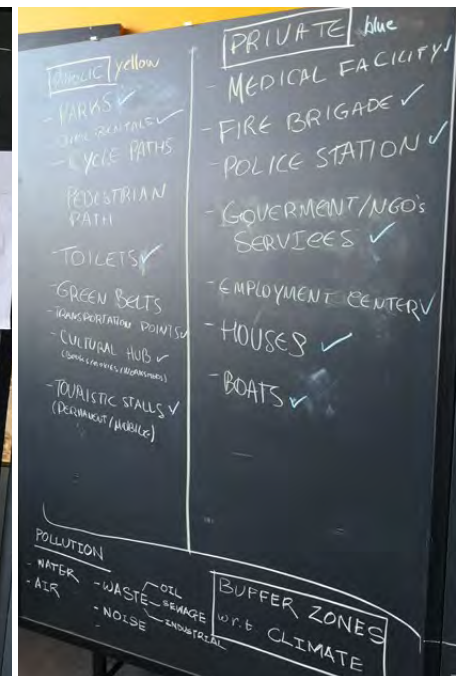 PUBLIC yellow
- PARKS ✓
- CYCLE PATHS
PEDESTRIAN
PATH
- TOILETS ✓
- GREEN BELTS
- TRANSPORTATION POINTS ✓
- CULTURAL HUB ✓
- TOURISTIC STALLS ✓
(PERMANENT/MOBILE)
PRIVATE blue
- MEDICAL FACILITY ✓
- FIRE BRIGADE ✓
- POLICE STATION ✓
- GOVERMENT/NGO's
SERVICES ✓
- EMPLOYMENT CENTER ✓
- HOUSES ✓
- BOATS ✓
POLLUTION
- WATER
- AIR
- WASTE
OIL
SEWAGE
INDUSTRIAL
- NOISE
BUFFER ZONES
w.r.t CLIMATE